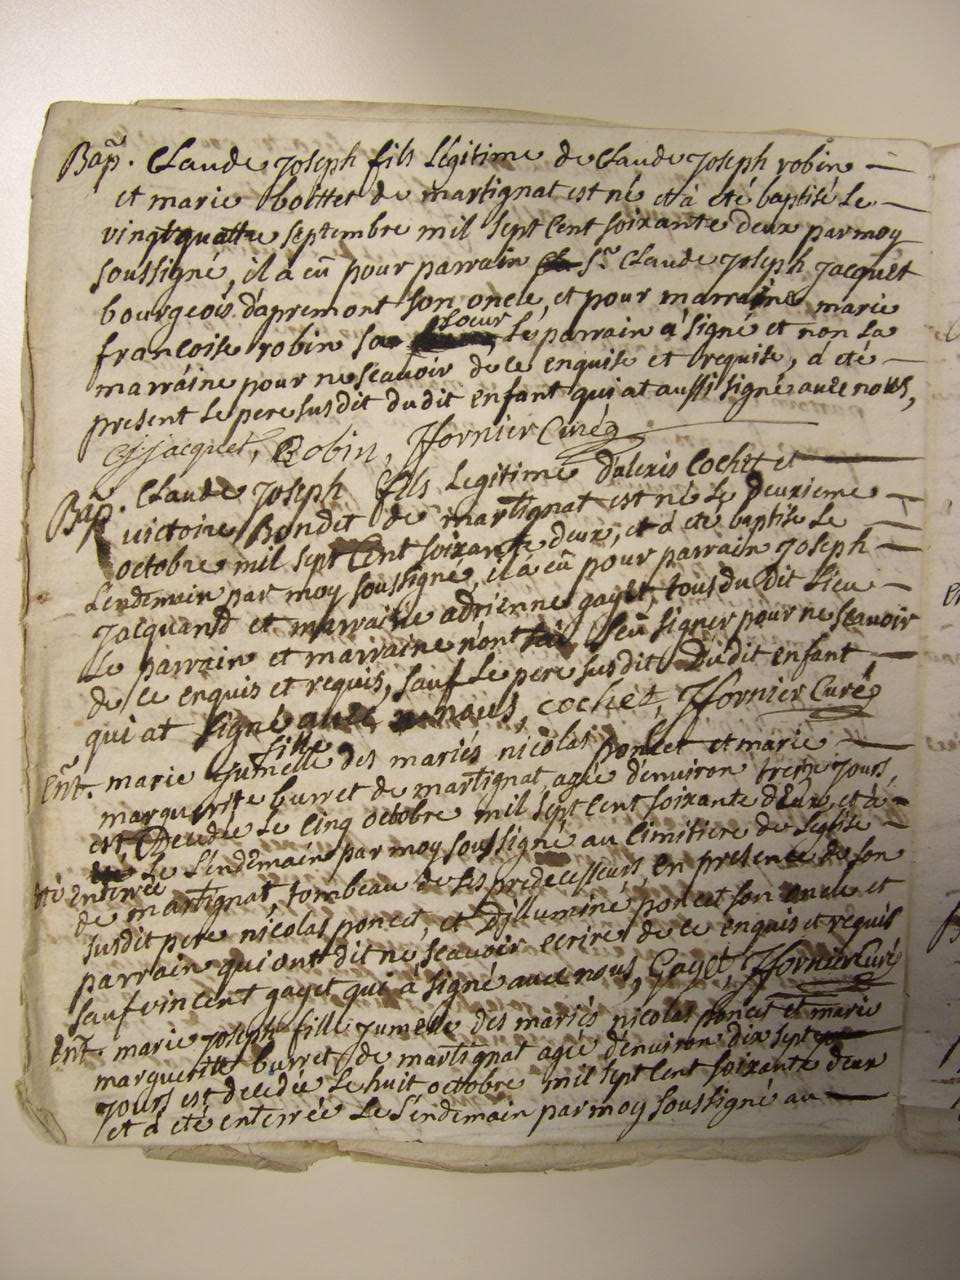 Bap. Claude Joseph fils légitime de Claude Joseph robin
et marie bolttet de martignat est né et à été baptisé Le
vingtquattre septembre mil sept Cent soixante deux par moy
soussigné, il à eû pour parrain Sr. Claude Joseph Jacquet
bourgeois d'apremont son oncle, et pour marraine marie
francoise robin sa soeur, Lé parrain à signé et non La
marraine pour ne scavoir de ce enquise et requise, à eté
present Le pere susdit dudit enfant qui at aussi signé avec nous,
Cj. jacquet, Robin, Jfornier Curé
Bap. Claude Joseph fils Legitime d'alexis Cochet et
victoire Bondet de martignat est né Le deuxieme
octobre mil sept Cent soixante deux, et à eté baptisé Le
Lendemain par moy soussigné, il à eû pour parrain Joseph
Jacquand et marraine adrienne gayet, tous du dit Lieu
Le parrain et marraine n'ont Sçu signer pour ne scavoir
de ce enquis et requis, sauf Le pere susdit Dudit enfant,
qui at signé avec nous, cochet, Jfornier Curé
Ent. marie fille Jumelle des mariés nicolas poncet et marie
marguerite burret de martignat, agée d'environ treize Jours,
est Decedée Le Cinq octobre mil sept Cent soixante deux, et à
été enterrée Le L'endemain par moy soussigné au Cimitiere de L'eglise
de martignat, tombeau de ses predecesseurs, en presence de son
susdit pere nicolas poncet, et D'illuminé poncet son oncle et
parrain qui ont dit ne scavoir ecrire de ce enquis et requis
sauf vincent gayet qui à signé avec nous, Gayet, Jfornier Curé
Ent. marie Joseph fille Jumelle des mariés nicolas poncet et marie
marguerite burret de martignat agée d'environ dix sept
Jours est decedée Le huit octobre mil sept Cent soixante deux
et à eté enterrée Le L'endemain par moy soussigné au